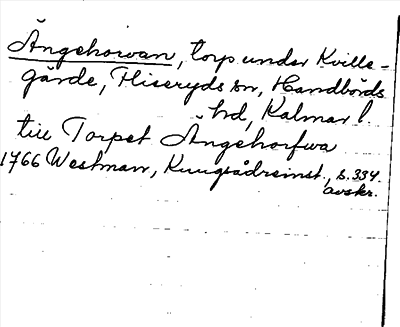 Ängehorvan, torp under Kville-
gärde, Fliseryds sn, Handbörds
hd, Kalmar l.
till Torpet Ängehorfwa
1766 Westman, Kungsådreinst., s. 334.
avskr.